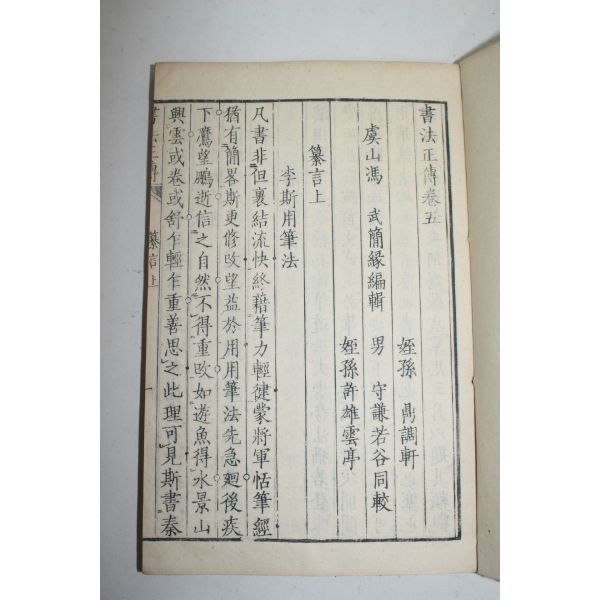 書法正傳卷五
姪孫 鼎調軒
虞山馮 武簡緣編輯 男 守謙若谷同較
姪孫許雄雲亭
纂言上
李斯用筆法
凡書非但裹結流快終藉筆力輕健蒙將軍恬筆經
猶有簡畧斯更修攺望益於用用筆法先急廻後疾
下鷹望鵬逝信之自然不得重攺如遊魚得水景山
興雲或卷或舒乍輕乍重善思之此理可見斯書秦
書法正傳 纂言上 一